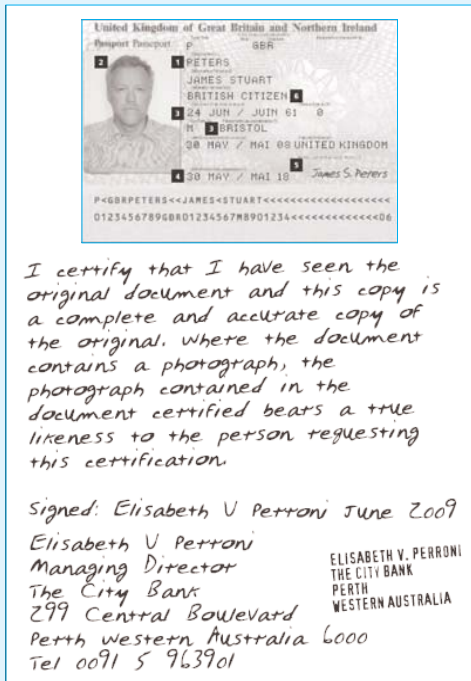 United Kingdom of Great Britain and Northern Ireland
Passport Passeport
P GBR
2 1 PETERS
JAMES STUART
BRITISH CITIZEN 6
3 24 JUN / JUIN 61 0
M 3 BRISTOL
30 MAY / MAI 08 UNITED KINGDOM
5
4 30 MAY / MAI 18 James S. Peters
P<GBRPETERS<<JAMES<STUART<<<<<<<<<<<<<<<<<<<
0123456789GBR01234567M8901234<<<<<<<<<<<<<<06
I certify that I have seen the
original document and this copy is
a complete and accurate copy of
the original. Where the document
contains a photograph, the
photograph contained in the
document certified bears a true
likeness to the person requesting
this certification.
Signed: Elisabeth V Perroni June 2009
Elisabeth V Perroni
Managing Director
The City Bank
299 Central Boulevard
Perth Western Australia 6000
Tel 0091 5 963901
ELISABETH V. PERRONI
THE CITY BANK
PERTH
WESTERN AUSTRALIA